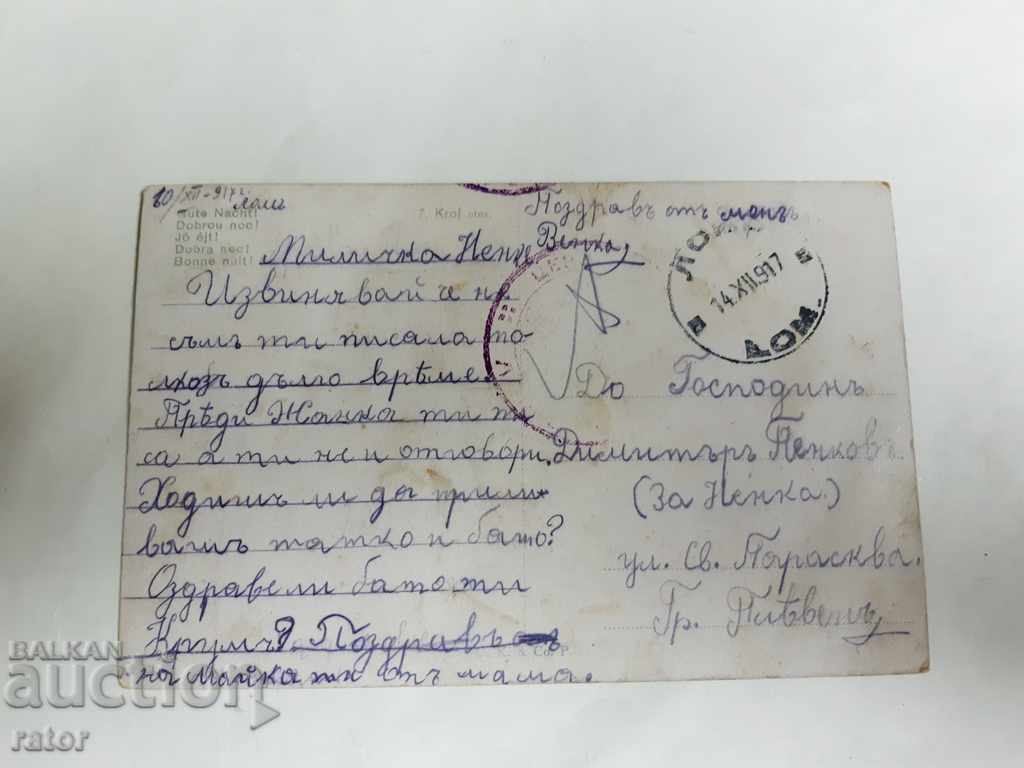 10/XII-917г.
Ломъ
Gute Nacht!
Dobrou noc!
Jó éjt!
Dobra noc!
Bonne nuit!
7. Kroj
Поздравъ отъ менъ
Венка
Миличка Ненке
Извинявай че не
съмъ ти писала то-
лкозъ дълго врѣме.
Прѣди Жанка ти пи
са а ти не и отговори.
Ходишъ ли да прили
вашъ татко и бато?
Оздравели бато ти
Крумъ? Поздравъ
на майка ти отъ мама.
ЛОМ
14.XII.917
ЛОМ.
До Господинъ
Димитъръ Пенковъ
(За Ненка)
ул. Св. Парасква.
Гр. Плѣвенъ
& Co. P.
BALKAN
auction
rator